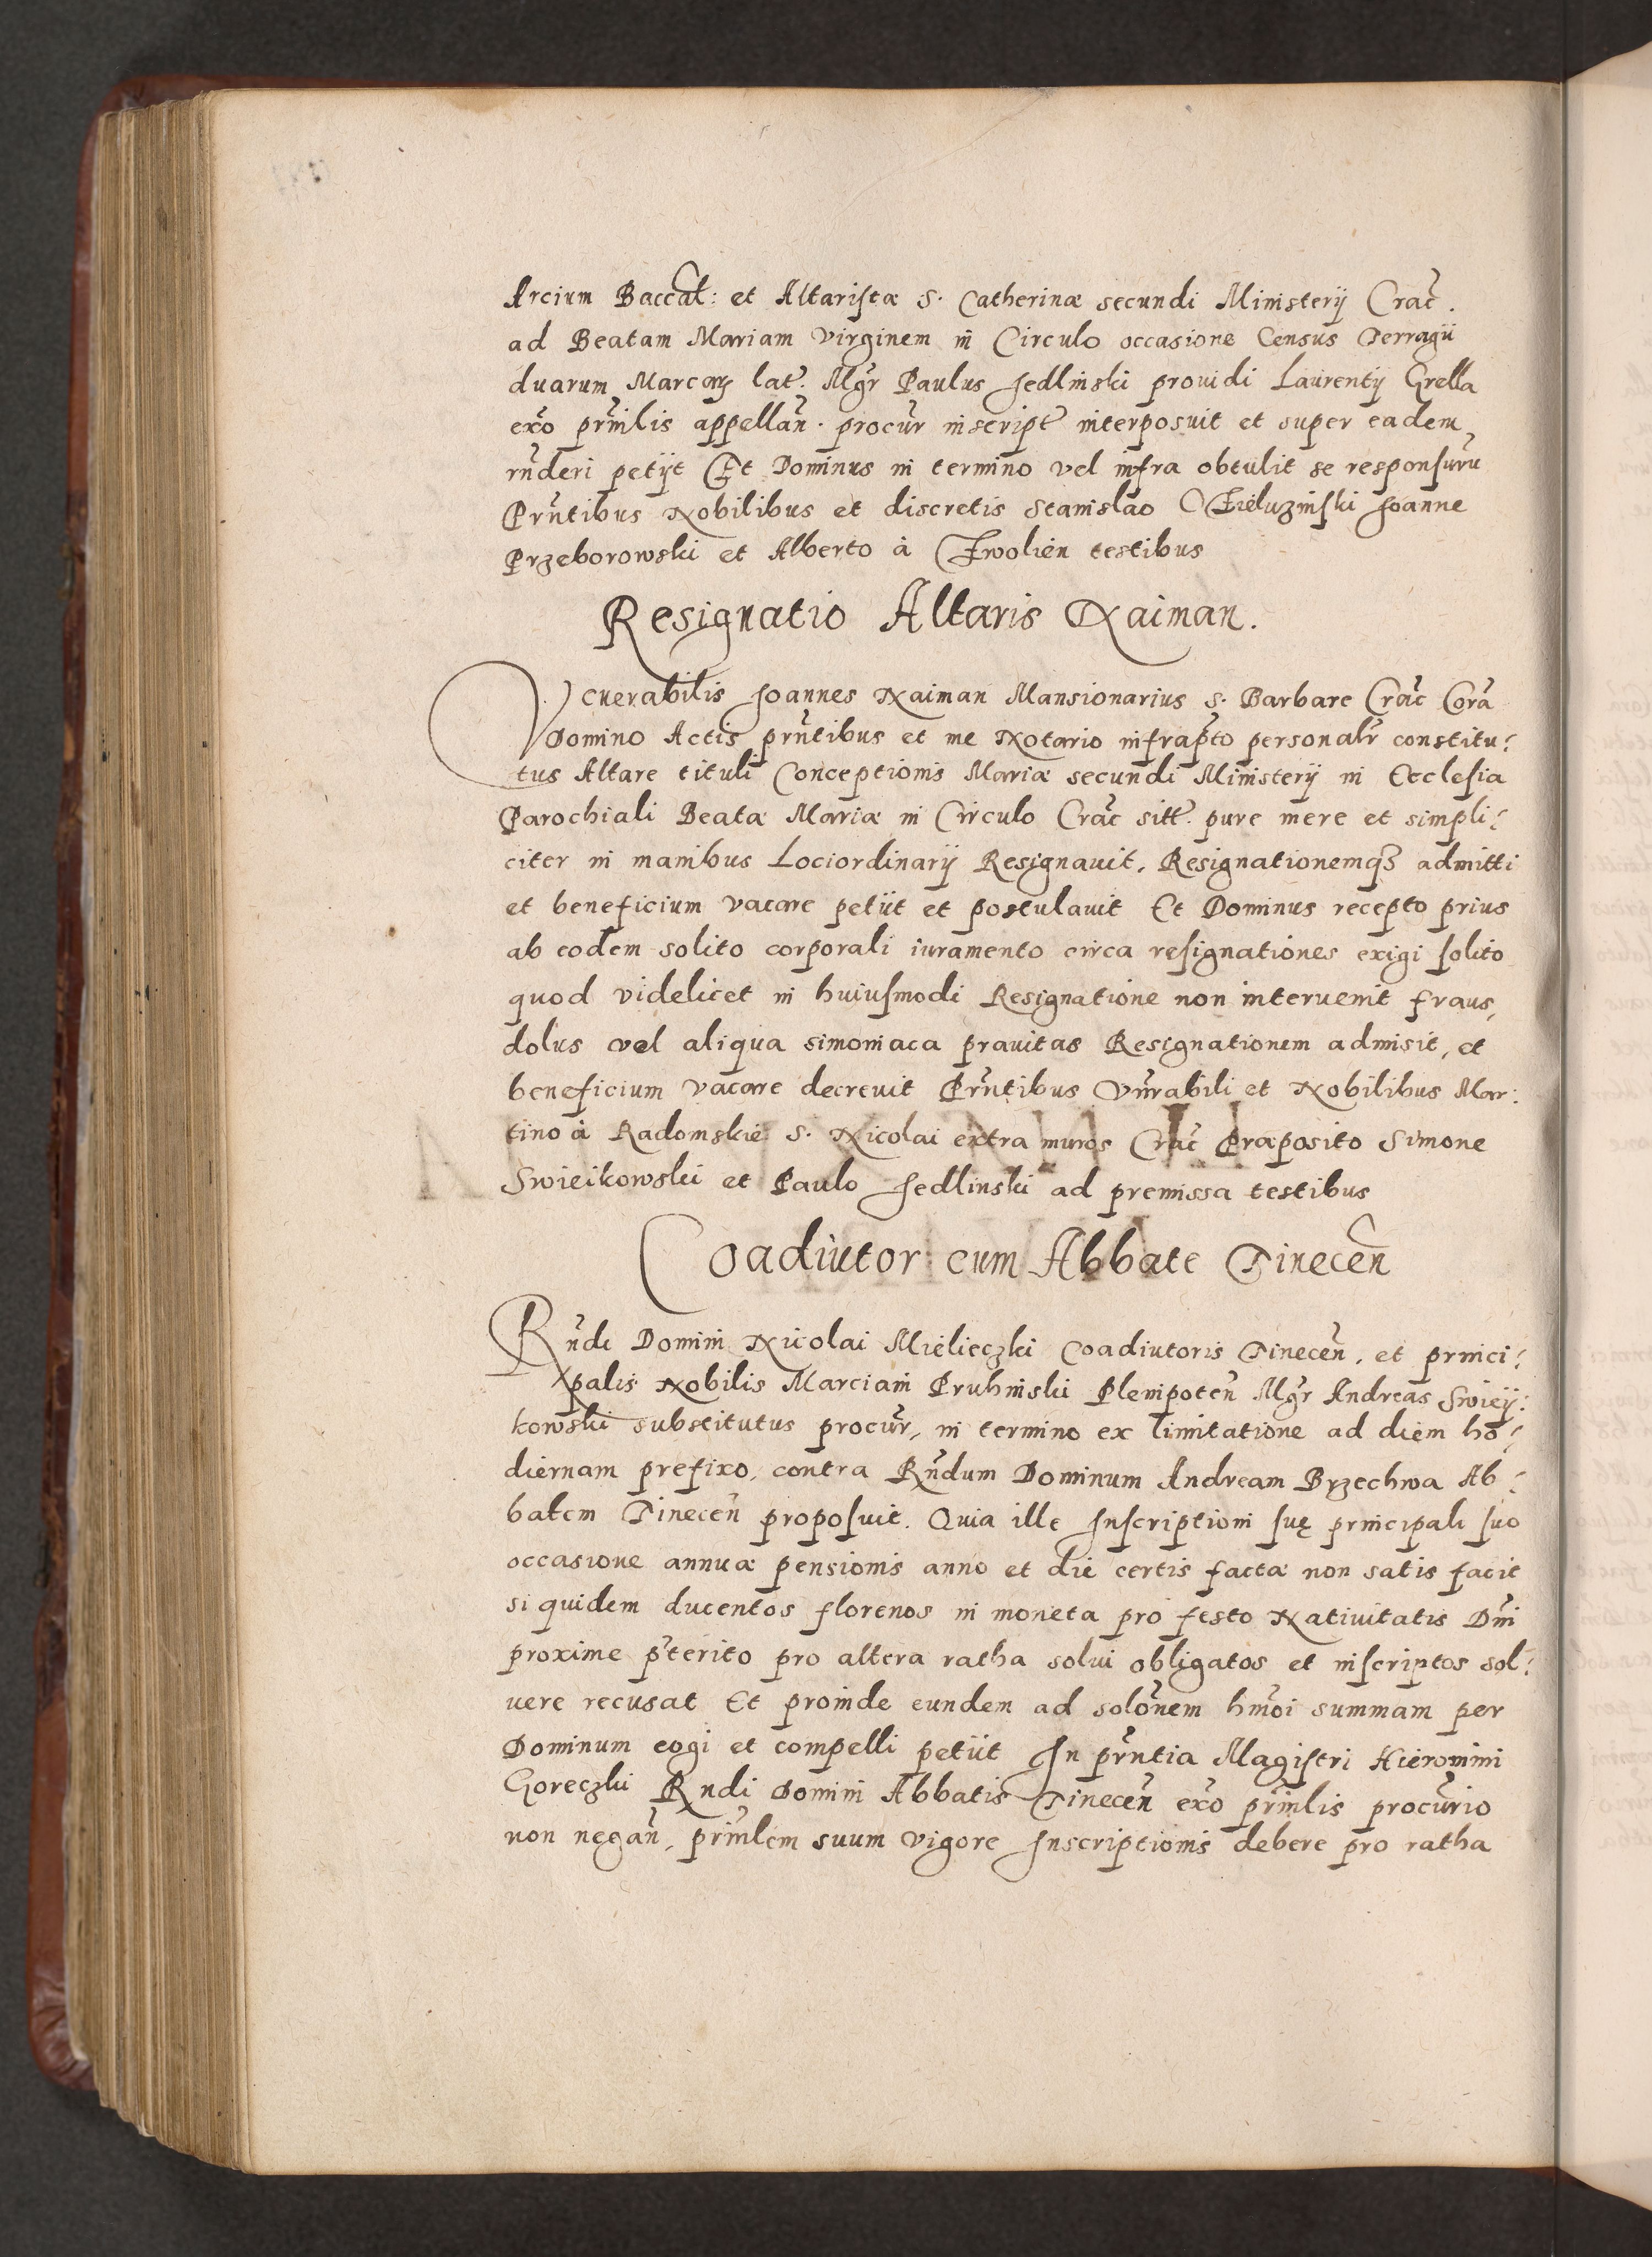 Arcium Baccal: et Altaristæ S. Catherinæ secundi Ministerij Crac̃.
ad Beatam Mariam Virginem in Circulo occasione Census Terragij
duarum Marcarꝝ lat̃. Mgr̃ Paulus Jedlinski prouidi Laurentij Grella
exõ prñlis appellan̄. procur̃ inscript̃ interposuit et super eadem
rñderi petijt Et Dominus in termino vel infra obtulit se responsurũ
Prñtibus Nobilibus et discretis Stanislao Joanne
Przeborowski et Alberto à Zwolien testibus
Resignatio Altaris Naiman.
Venerabilis Joannes Naiman Mansionarius S. Barbare Crac̃ Corã
Domino Actis prñtibus et me Notario infrapt̃o personalr̃ constitu:
tus Altare tituli Conceptionis Mariæ secundi Ministerij in Ecclesia
Parochiali Beatæ Mariæ in Circulo Crac̃ sitt̃. pure mere et simpli:
citer in manibus Lociordinarij Resignauit, Resignationemqꝫ admitti
et beneficium vacare petijt et postulauit Et Dominus recepto prius
ab eodem solito corporali iuramento circa resignationes exigi solito
quod videlicet in huiusmodi Resignatione non interuenit fraus,
dolus vel aliqua simoniaca prauitas Resignationem admisit, et
beneficium vacare decreuit Prñtibus Vnrabili et Nobilibus Mar:
tino à Radomskie S. Nicolai extra muros Crac̃ Præposito Simone
Swieikowski et Paulo Jedlinski ad premissa testibus
Coadiutor cum Abbate Tinecen̄
Rñdi Domini Nicolai Mieleczki Coadiutoris Tinecen̄, et princi:
palis Nobilis Marciani Pruhinski Plenipoten̄ Mgr̃ Andreas Swieij:
kowski substitutus procur̃, in termino ex limitatione ad diem ho:
diernam prefixo, contra Rñdum Dominum Andream Brzechwa Ab:
batem Tinecen̄ proposuit. Quia ille Inscriptioni suę principali suo
occasione annuæ pensionis anno et die certis factæ non satis facit
si quidem ducentos florenos in moneta pro festo Natiuitatis Dñi
proxime p̃terito pro altera ratha solui obligatos et inscriptos sol:
uere recusat Et proinde eundem ad solõnem hm̃oi summam per
Dominum cogi et compelli petijt In prñtia Magistri Hieronimi
Goreczki Rndi Domini Abbatis Tinecen̄ exõ prñlis procur̃io
non negan̄, prñlem suum vigore Inscriptionis debere pro ratha